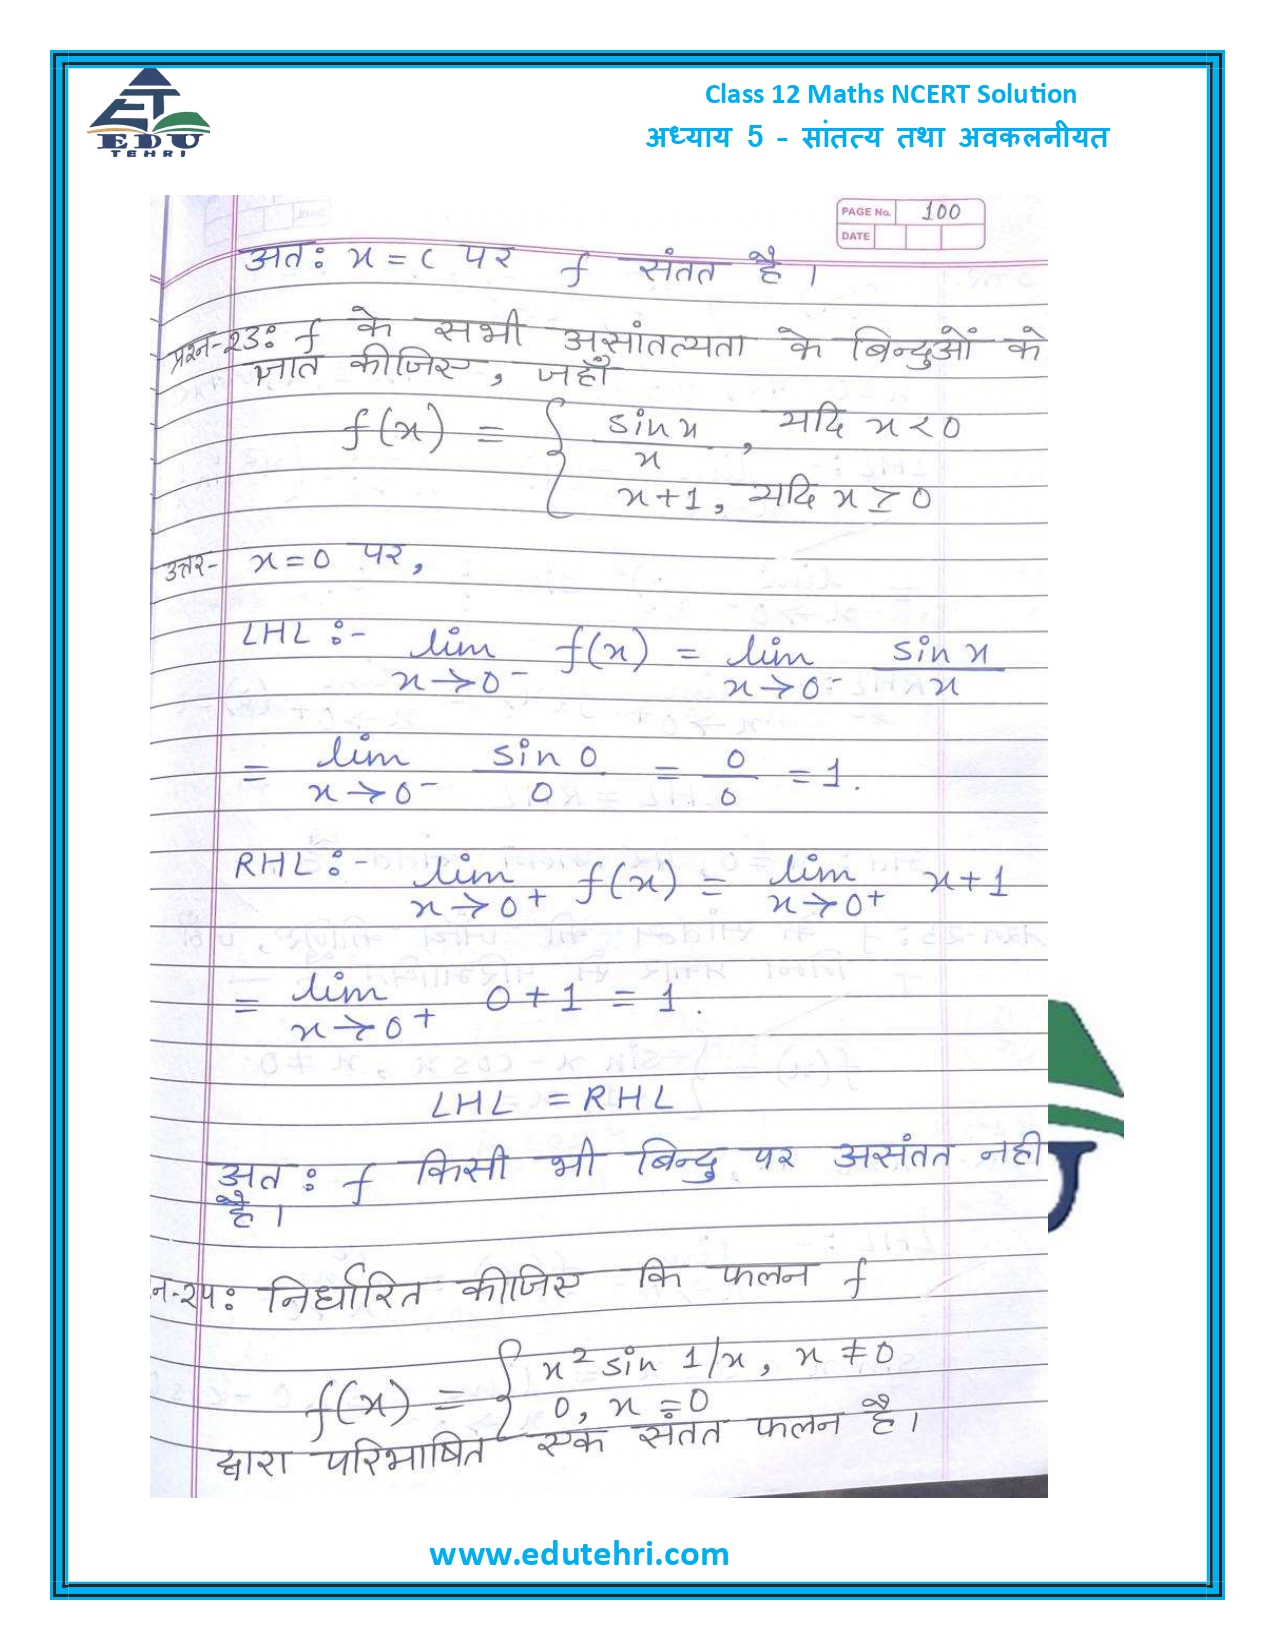 Class 12 Maths NCERT Solution
अध्याय 5 - सांतत्य तथा अवकलनीयत
EDU
TEHRI
PAGE No. 100
DATE
अतः x = c पर f संतत है।
प्रश्न-23: f के सभी असांतत्यता के बिन्दुओं के
ज्ञात कीजिए, जहाँ
f(x) = { sin x / x , यदि x < 0
x+1, यदि x ≥ 0
उत्तर- x = 0 पर,
LHL :- lim x→0⁻ f(x) = lim x→0⁻ sin x / x
= lim x→0⁻ sin 0 / 0 = 0/0 = 1.
RHL :- lim x→0⁺ f(x) = lim x→0⁺ x+1
= lim x→0⁺ 0+1 = 1.
LHL = RHL
अतः f किसी भी बिन्दु पर असंतत नही
है।
न-24: निर्धारित कीजिए कि फलन f
f(x) = { x² sin 1/x, x ≠ 0
0, x = 0
द्वारा परिभाषित एक संतत फलन है।
www.edutehri.com